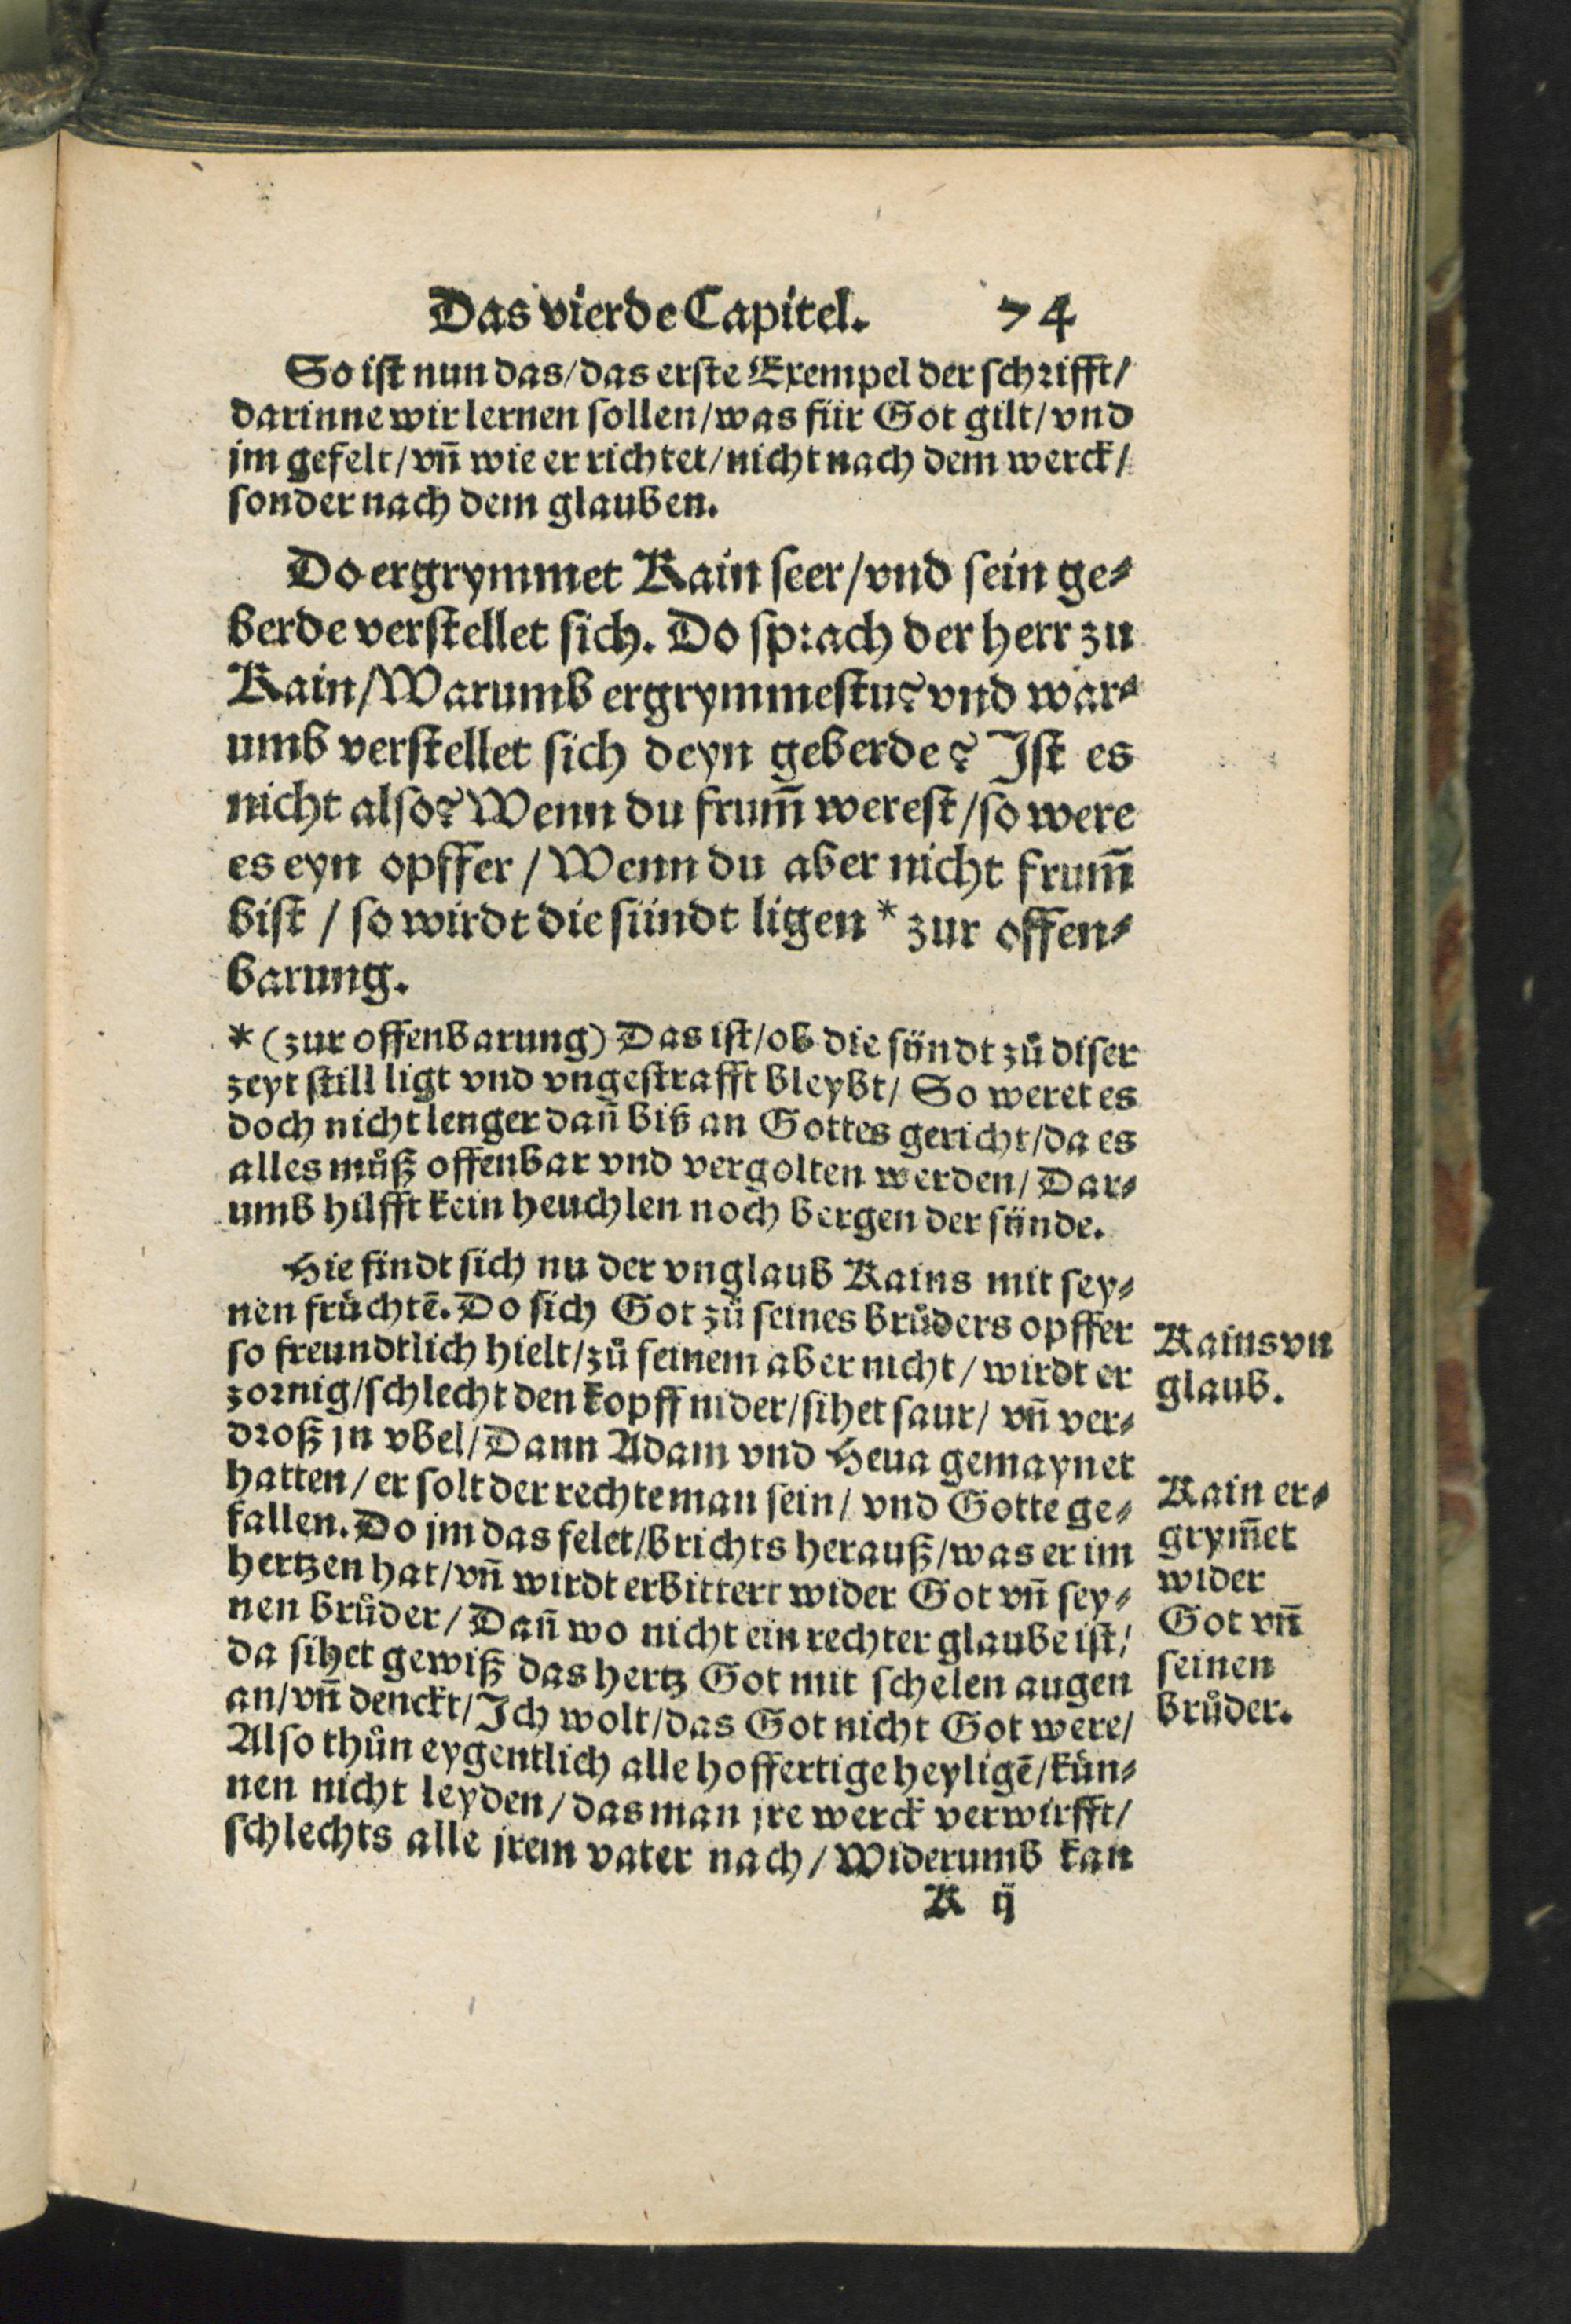 Das vierde Capitel. 74
So ist nun das/das erste Exempel der schrifft/
darinne wir lernen sollen/was für Got gilt/vnd
jm gefelt/vn̄ wie er richtet/nicht nach dem werck/
sonder nach dem glauben.
Do ergrymmet Kain seer/vnd sein ge⸗
berde verstellet sich. Do sprach der herr zu
Kain/Warumb ergrymmestu? vnd war⸗
umb verstellet sich deyn geberde? Ist es
nicht also? Wenn du frum̄ werest/so were
es eyn opffer/Wenn du aber nicht frum̄
bist/so wirdt die sündt ligen * zur offen⸗
barung.
* (zur offenbarung) Das ist/ob die sündt zů diser
zeyt still ligt vnd vngestrafft bleybt/ So weret es
doch nicht lenger dan̄ biß an Gottes gericht/da es
alles můß offenbar vnd vergolten werden/ Dar⸗
umb hilfft kein heuchlen noch bergen der sünde.
Hie findt sich nu der vnglaub Kains mit sey⸗
nen früchtē. Do sich Got zů seines brůders opffer
so freundtlich hielt/zů seinem aber nicht/wirdt er
zornig/schlecht den kopff nider/sihet saur/ vn̄ ver⸗
droß jn vbel/Dann Adam vnd Heua gemaynet
hatten/er solt der rechte man sein/ vnd Gotte ge⸗
fallen. Do jm das felet/brichts herauß/was er im
hertzen hat/vn̄ wirdt erbittert wider Got vn̄ sey⸗
nen brůder/Dan̄ wo nicht ein rechter glaube ist/
da sihet gewiß das hertz Got mit schelen augen
an/vn̄ denckt/Ich wolt/das Got nicht Got were/
Also thůn eygentlich alle hoffertige heyligē/kün⸗
nen nicht leyden/das man jre werck verwirfft/
schlechts alle jrem vater nach/Widerumb kan
K ij
Kains vn
glaub.
Kain er⸗
grym̄et
wider
Got vn̄
seinen
brůder.